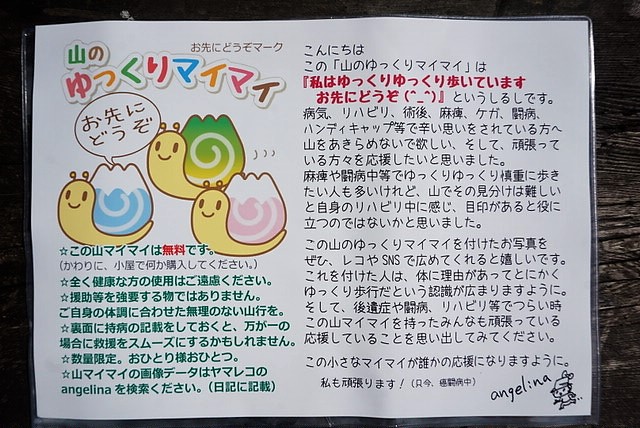 お先にどうぞマーク
山の
ゆっくりマイマイ
お先に
どうぞ
☆この山マイマイは無料です。
(かわりに、小屋で何か購入してください。)
☆全く健康な方の使用はご遠慮ください。
☆援助等を強要する物ではありません。
ご自身の体調に合わせた無理のない山行を。
☆裏面に持病の記載をしておくと、万が一の
場合に救援をスムーズにするかもしれません。
☆数量限定。おひとり様おひとつ。
☆山マイマイの画像データはヤマレコの
angelinaを検索ください。(日記に記載)
こんにちは
この「山のゆっくりマイマイ」は
『私はゆっくりゆっくり歩いています
お先にどうぞ(^_^)』というしるしです。
病気、リハビリ、術後、麻痺、ケガ、闘病、
ハンディキャップ等で辛い思いをされている方へ
山をあきらめないで欲しい、そして、頑張って
いる方々を応援したいと思いました。
麻痺や闘病中等でゆっくりゆっくり慎重に歩き
たい人も多いけれど、山でその見分けは難しい
と自身のリハビリ中に感じ、目印があると役に
立つのではないかと思いました。
この山のゆっくりマイマイを付けたお写真を
ぜひ、レコやSNSで広めてくれると嬉しいです。
これを付けた人は、体に理由があってとにかく
ゆっくり歩行だという認識が広まりますように。
そして、後遺症や闘病、リハビリ等でつらい時
この山マイマイを持ったみんなも頑張っている
応援していることを思い出してみてください。
この小さなマイマイが誰かの応援になりますように。
私も頑張ります!(只今、癌闘病中)
angelina